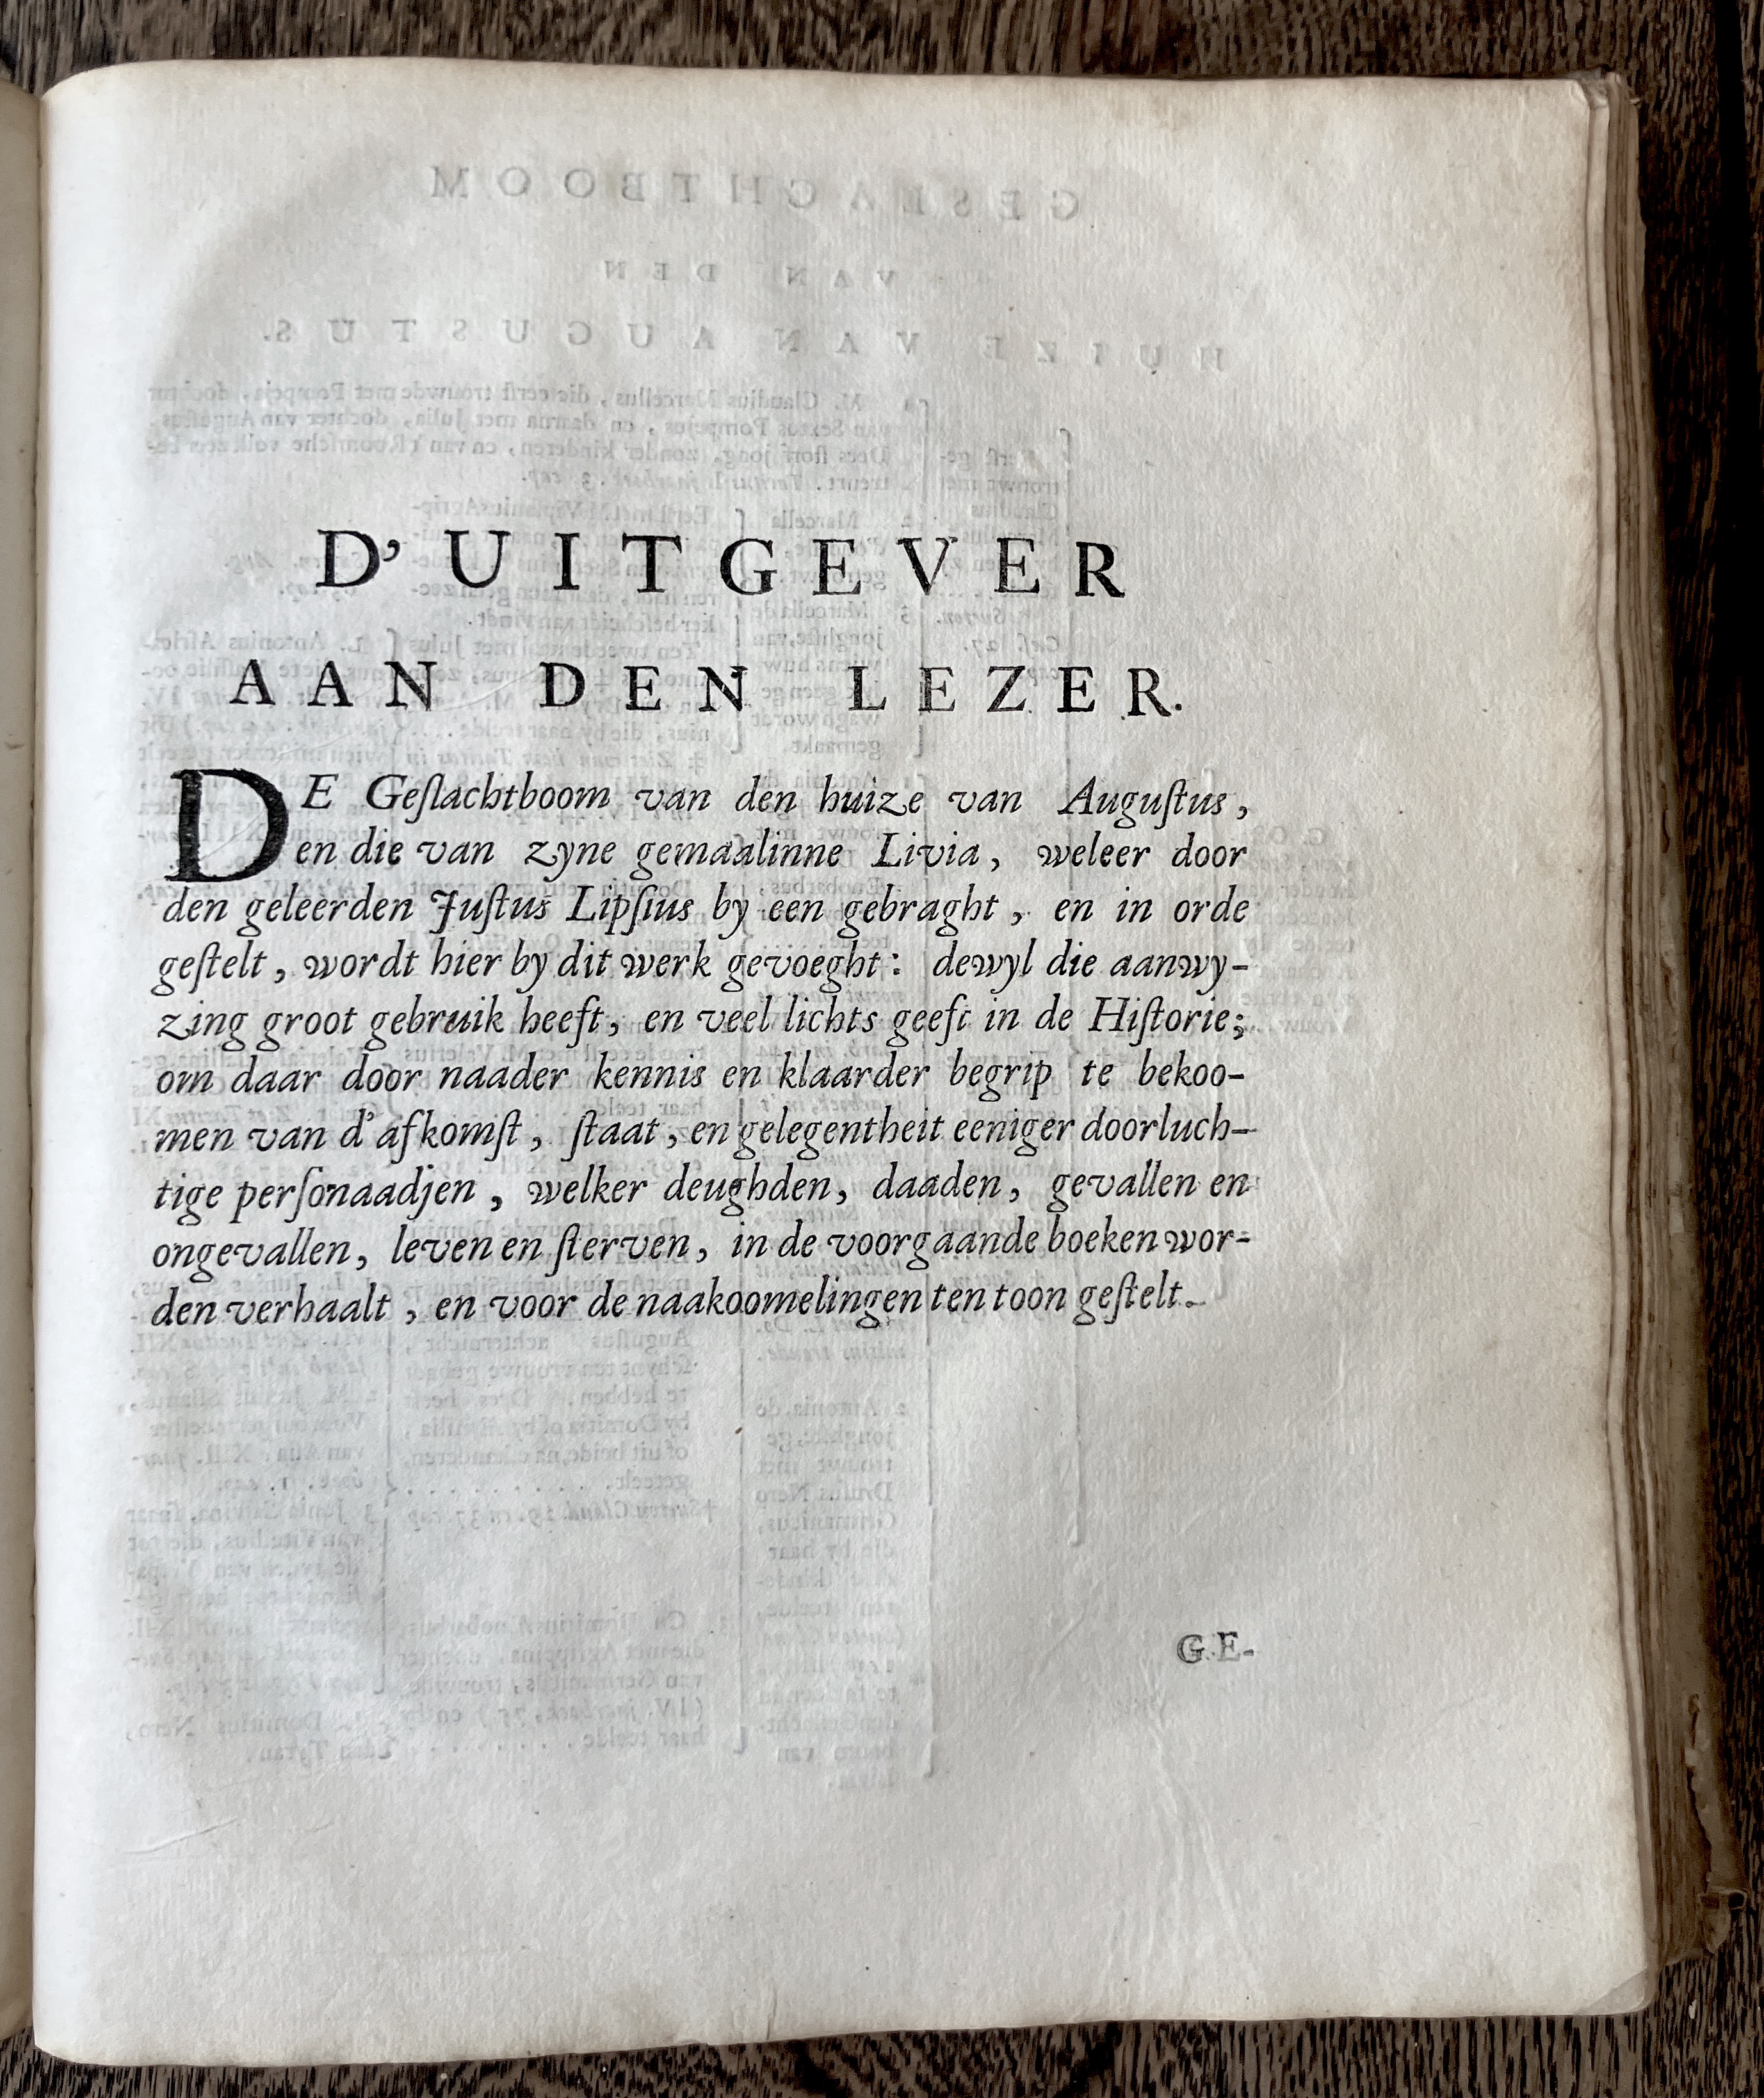 D' UITGEVER
AAN DEN LEZER.
DE Geſlachtboom van den huize van Auguſtus,
en die van zyne gemaalinne Livia, weleer door
den geleerden Juſtus Lipſius by een gebraght, en in orde
geſtelt, wordt hier by dit werk gevoeght: dewyl die aanwy-
zing groot gebruik heeft, en veel lichts geeft in de Hiſtorie;
om daar door naader kennis en klaarder begrip te bekoo-
men van d'afkomſt, ſtaat, en gelegentheit eeniger doorluch-
tige perſonaadjen, welker deughden, daaden, gevallen en
ongevallen, leven en ſterven, in de voorgaande boeken wor-
den verhaalt, en voor de naakoomelingen ten toon geſtelt.
GE-